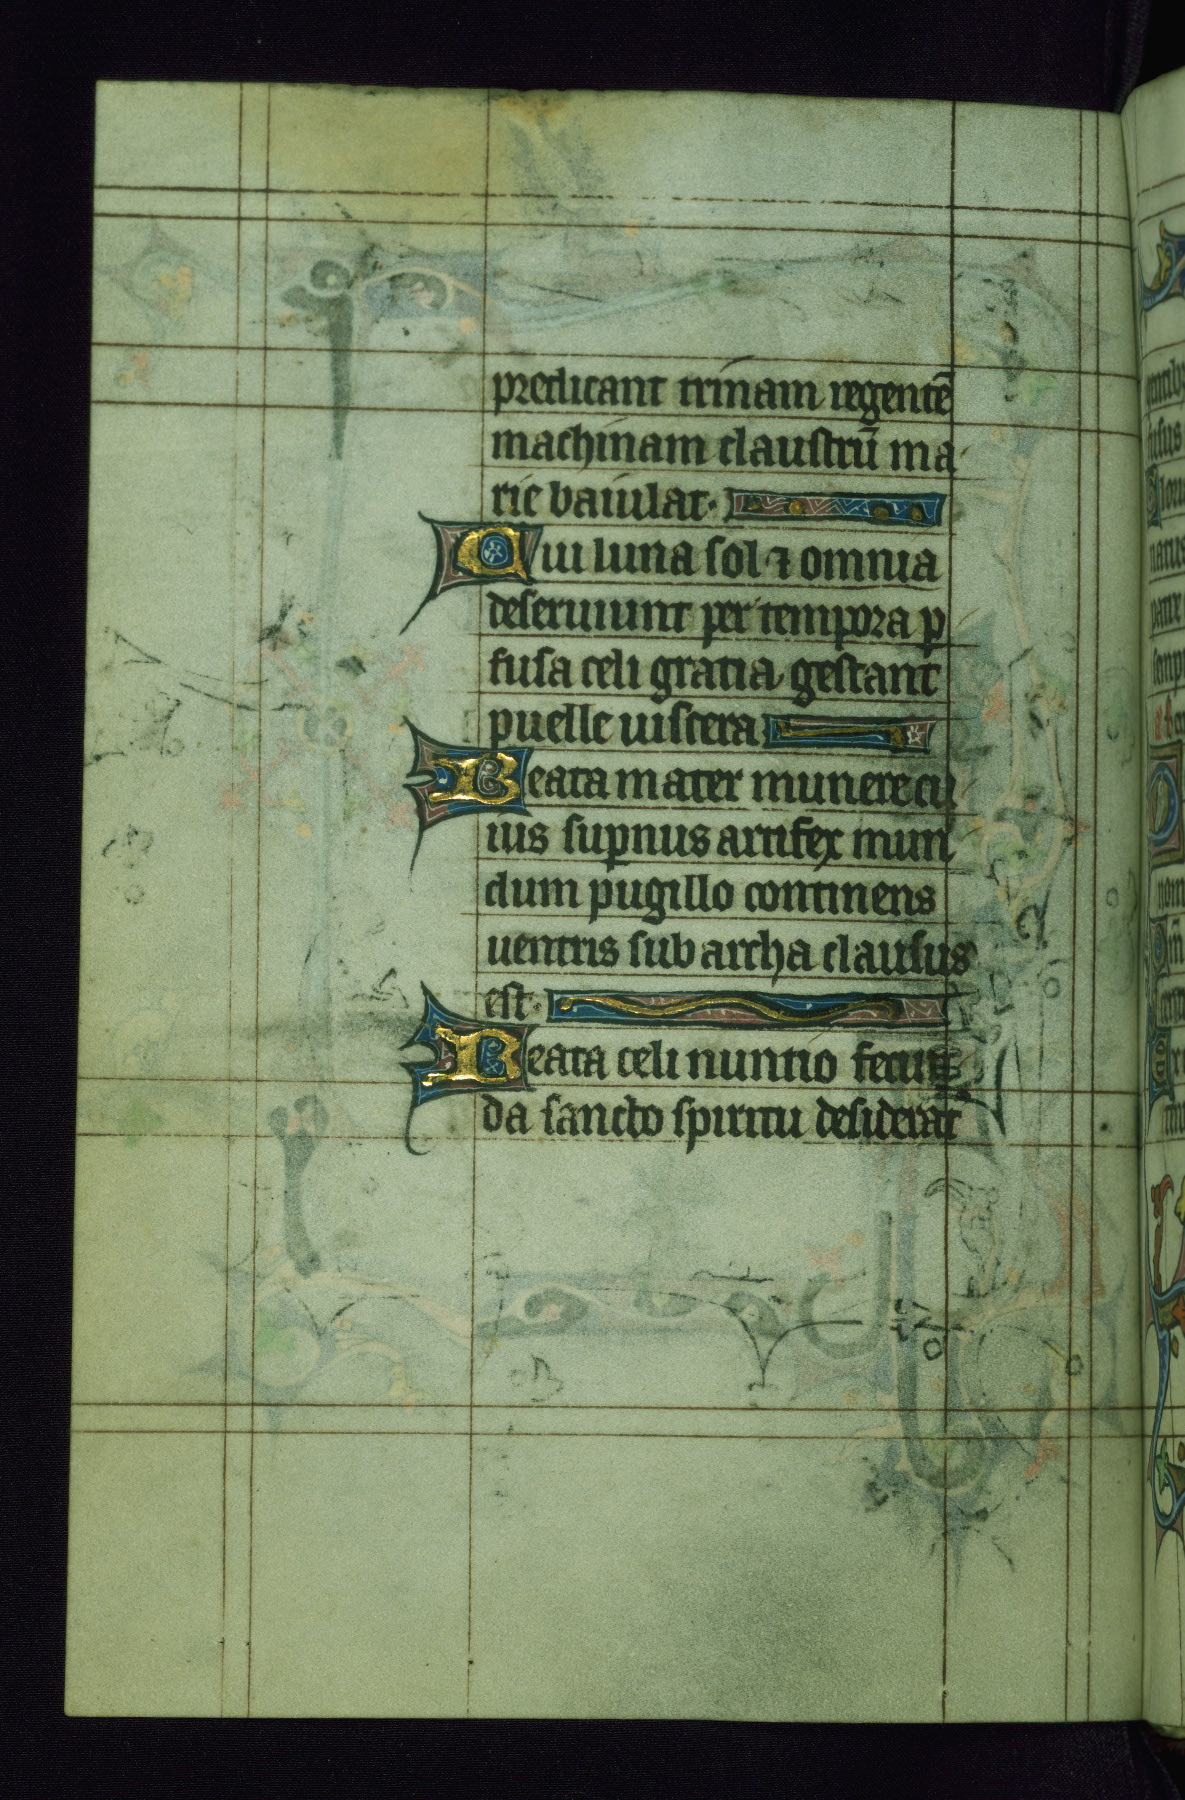 predicant trinam regentē
machinam claustrū ma
rie baiulat·
Cui luna sol ⁊ omnia
deseruiunt per tempora ꝑ
fusa celi gratia gestant
puelle uiscera
Beata mater munere cu
ius suꝑnus artifex mun
dum pugillo continens
uentris sub archa clausus
est·
Beata celi nuntio fecun
da sancto spiritu desiderat